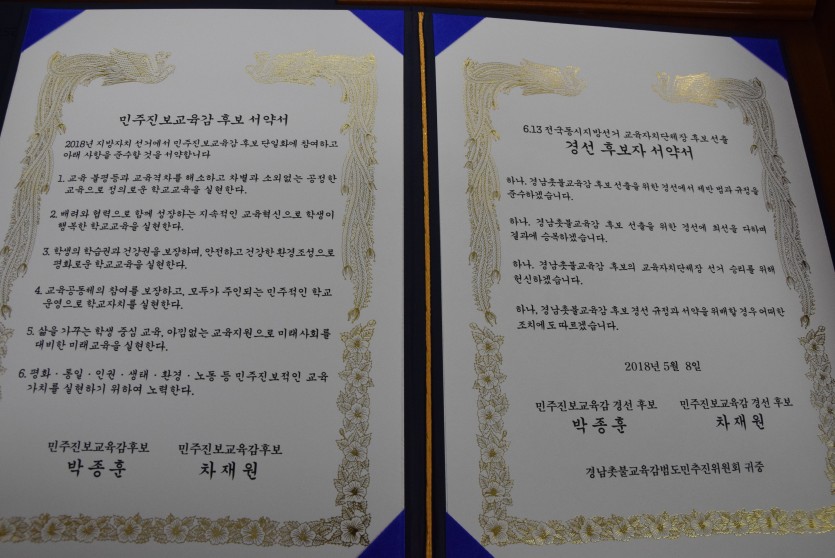 민주진보교육감 후보 서약서
2018년 지방자치 선거에서 민주진보교육감 후보 단일화에 참여하고
아래 사항을 준수할 것을 서약합니다
1. 교육 불평등과 교육격차를 해소하고 차별과 소외없는 공정한
교육으로 정의로운 학교교육을 실현한다.
2. 배려와 협력으로 함께 성장하는 지속적인 교육혁신으로 학생이
행복한 학교교육을 실현한다.
3. 학생의 학습권과 건강권을 보장하며, 안전하고 건강한 환경조성으로
평화로운 학교교육을 실현한다.
4. 교육공동체의 참여를 보장하고, 모두가 주인되는 민주적인 학교
운영으로 학교자치를 실현한다.
5. 삶을 가꾸는 학생 중심 교육, 아낌없는 교육지원으로 미래사회를
대비한 미래교육을 실현한다.
6. 평화 · 통일 · 인권 · 생태 · 환경 · 노동 등 민주진보적인 교육
가치를 실현하기 위하여 노력한다.
민주진보교육감후보 민주진보교육감후보
박종훈 차재원
6.13 전국동시지방선거 교육자치단체장 후보 선출
경선 후보자 서약서
하나, 경남촛불교육감 후보 선출을 위한 경선에서 제반 법과 규정을
준수하겠습니다.
하나, 경남촛불교육감 후보 선출을 위한 경선에 최선을 다하며
결과에 승복하겠습니다.
하나, 경남촛불교육감 후보의 교육자치단체장 선거 승리를 위해
헌신하겠습니다.
하나, 경남촛불교육감 후보 경선 규정과 서약을 위배할 경우 어떠한
조치에도 따르겠습니다.
2018년 5월 8일
민주진보교육감 경선 후보 민주진보교육감 경선 후보
박종훈 차재원
경남촛불교육감범도민추진위원회 귀중